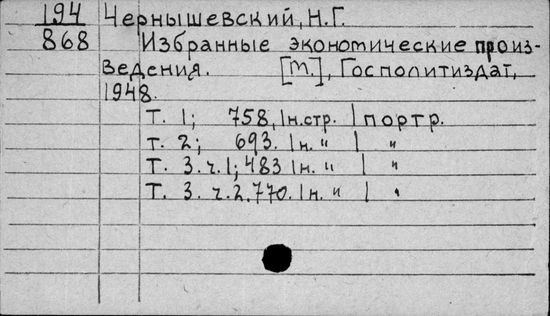 194 Чернышевский, Н.Г.
868 Избранные экономические произ-
ведения. [М.], Госполитиздат,
1948.
Т. 1; 758, 1н.стр. 1 портр.
т. 2; 693. 1н. " 1 "
Т. 3. ч. 1; 483 1н. " 1 "
Т. 3. ч. 2. 770. 1н. " 1 "